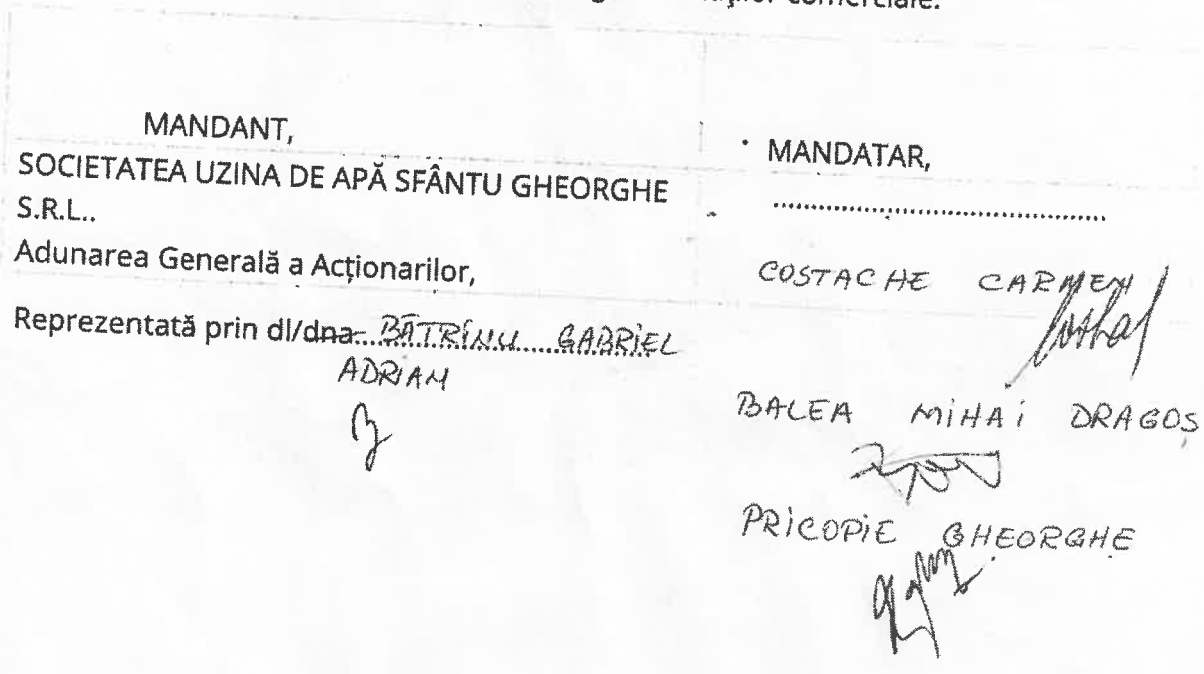 comerciale.
MANDANT,
SOCIETATEA UZINA DE APĂ SFÂNTU GHEORGHE
S.R.L..
Adunarea Generală a Acționarilor,
Reprezentată prin dl/dna...BĂTRÎNU GABRIEL
ADRIAN
MANDATAR,
........................................
COSTACHE CARMEN
BALEA MIHAI DRAGOȘ
PRICOPIE GHEORGHE